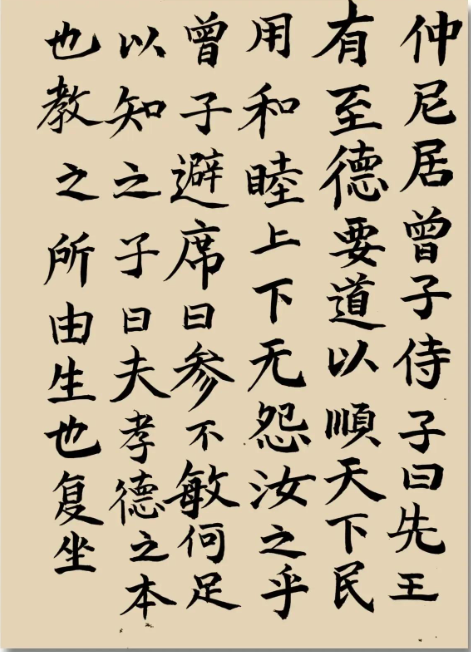 仲尼居曾子侍子曰先王
有至德要道以順天下民
用和睦上下无怨汝之乎
曾子避席曰参不敏何足
以知之子曰夫孝德之本
也教之所由生也复坐